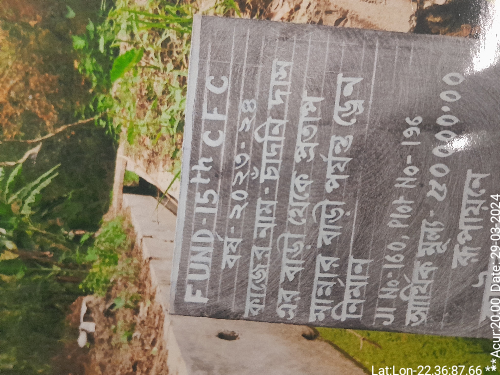 FUND-15th CFC
বর্ষ-২০২৩-২৪
কাজের নাম - চাঁদনি দাস
এর বাড়ী থেকে প্রতাপ
সামন্তর বাড়ী পর্যন্ত ড্রেন
নির্মান
Jl No-160, Plot No- 196
আর্থিক মূল্য- ৫০০০০.০০
রূপায়নে
Lat:Lon-22.36:87.66 **Acur:20.00 Date: 29-03-2024